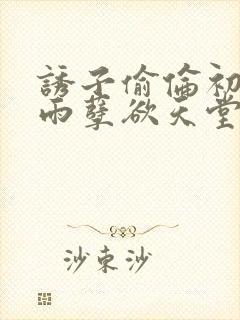 誘子偷倫初
雨孽欲天堂
沙束沙